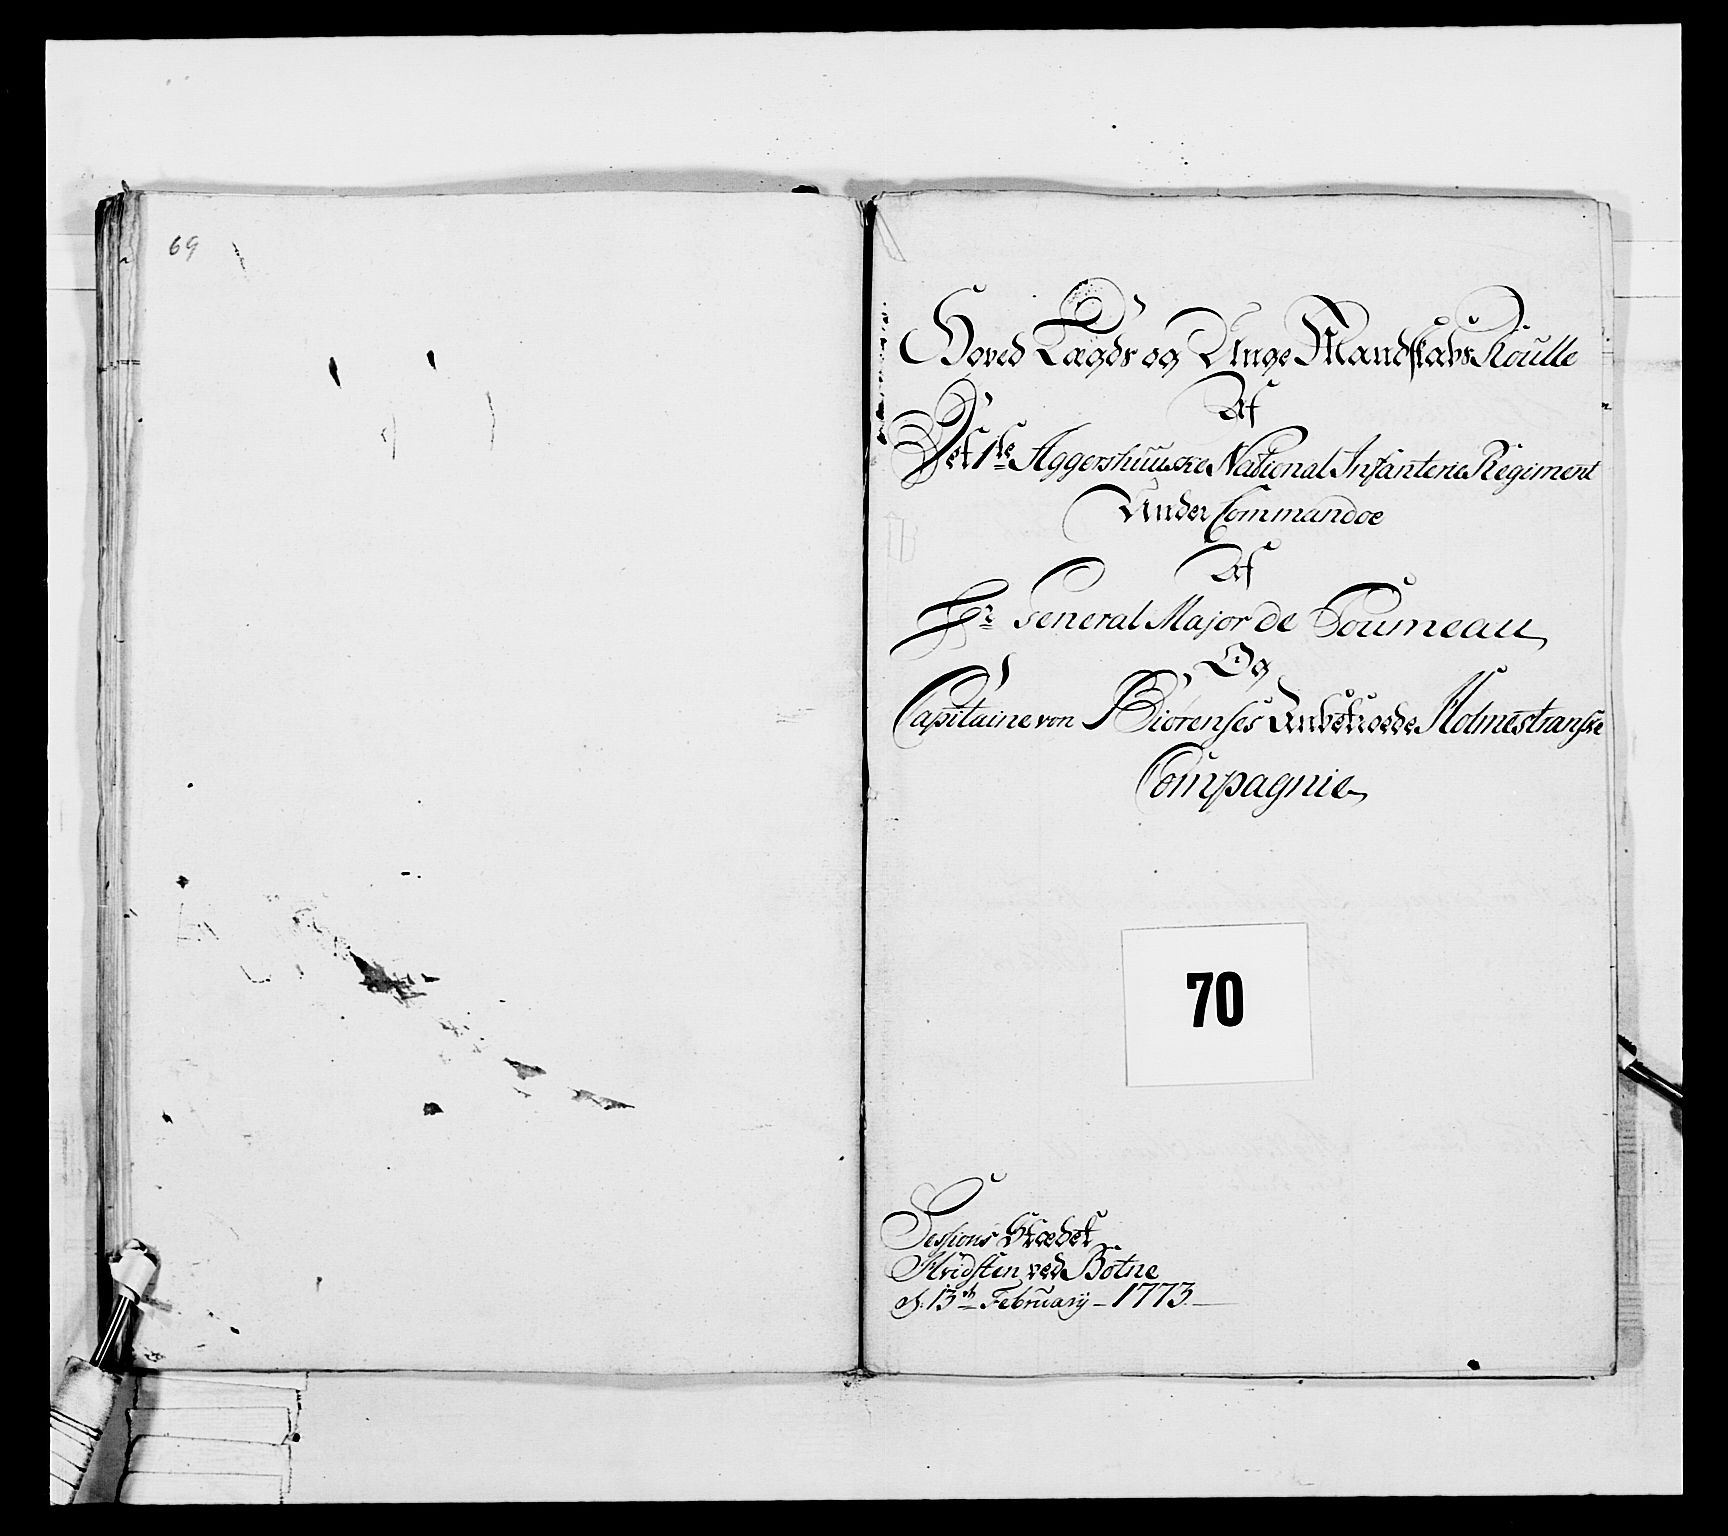 69
Hoved Lægds og Unge Mandskabs Roulle
Af
Det 1ste Aggershuuske National Infanterie Regiment
Under Commandoe
Af
Hr General Major de Tourneau
Og
Capitaine von Biörenses Anbetroede Holmestranske
Compagnie
70
Sessions Stædet
Hvidsten ved Botne
d. 13de February - 1773.